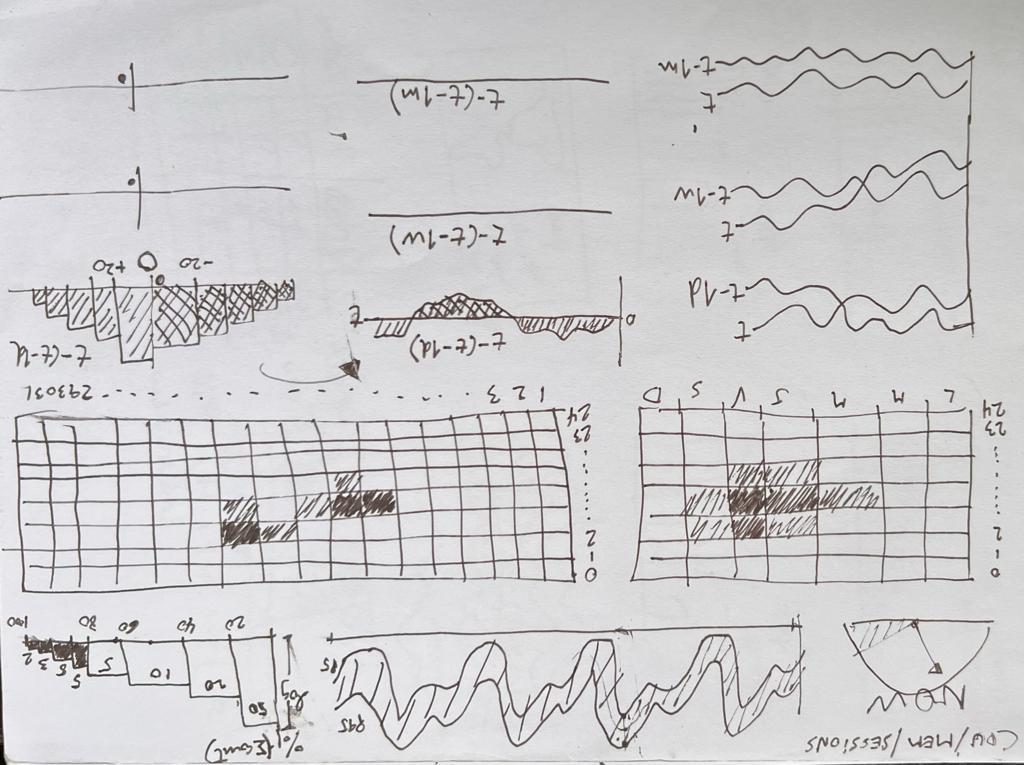 CPU/MEM/SESSIONS
NOW
P95
P5
% (Σcount)
log
50
20
10
5
5
5
3
2
20 40 60 80 100
0
1
2
23
24
L M M J V S D
0
1
2
23
24
1 2 3 . . . . . . . . . . . . 29 30 31
t
t-1d
0
t-(t-1d)
t
t-(t-1d
-20 0 +20
t
t-1w
t-(t-1w)
t
t-1m
t-(t-1m)